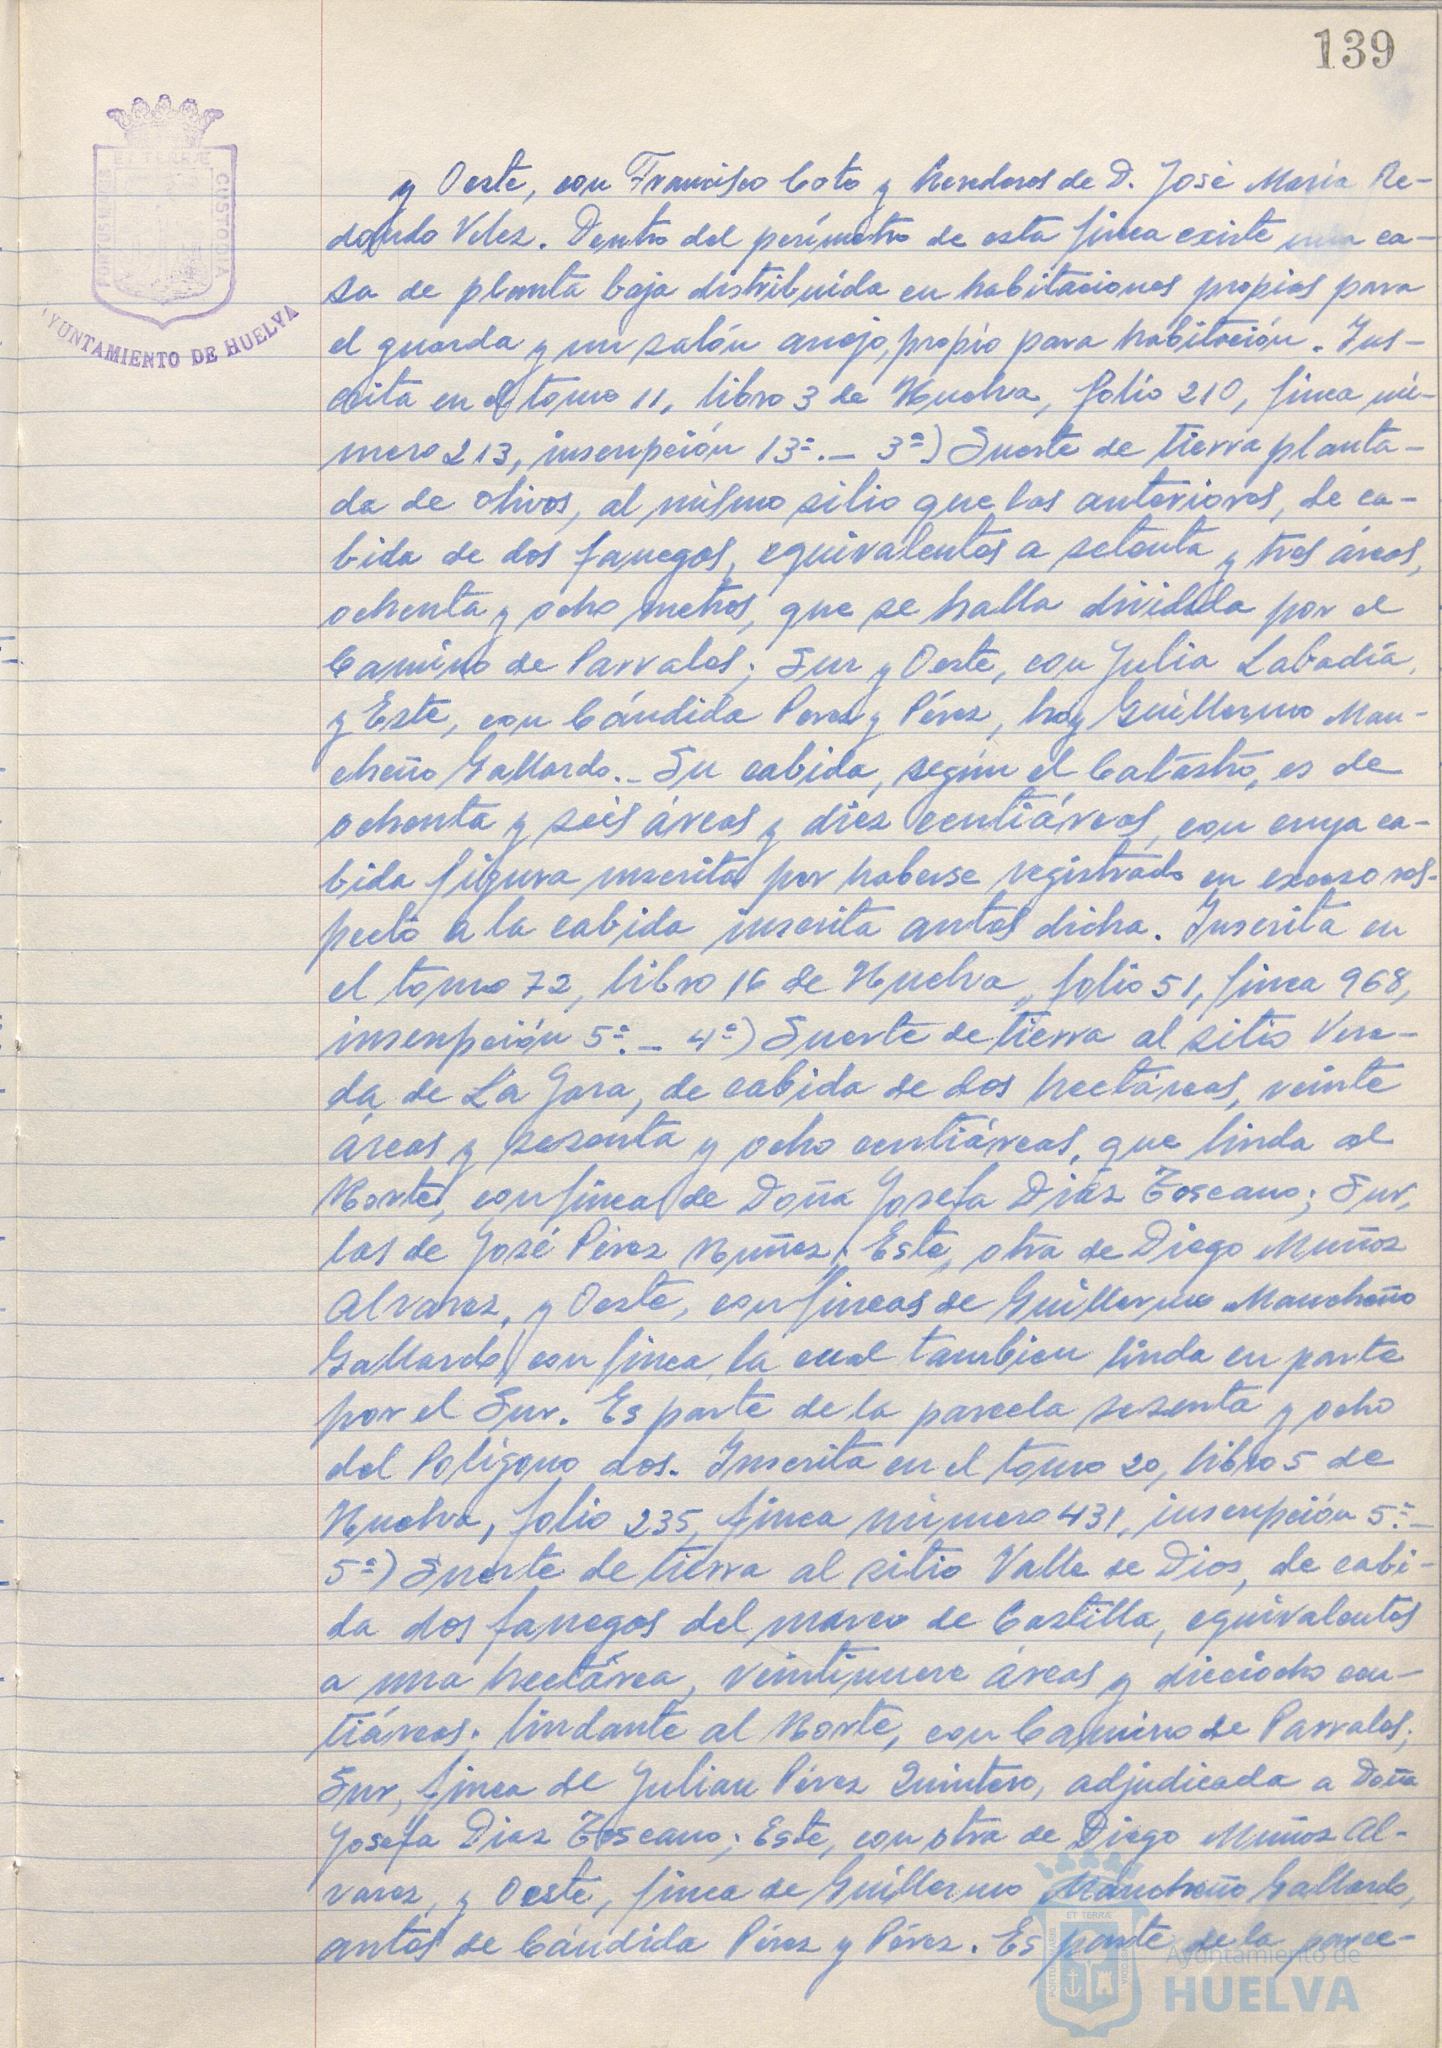 139
ET TERRÆ
PORTUS MARIS
CUSTODIA
AYUNTAMIENTO DE HUELVA
y Oeste, con Francisco Coto y herederos de D. José María Re-
dondo Velez. Dentro del perímetro de esta finca existe una ca-
sa de planta baja distribuída en habitaciones propias para
el guarda y un salón anejo, propio para habitación. Ins-
crita en el tomo 11, libro 3 de Huelva, folio 210, finca nú-
mero 213, inscripción 13ª.- 3ª) Suerte de tierra planta-
da de olivos, al mismo sitio que las anteriores, de ca-
bida de dos fanegas, equivalentes a setenta y tres áreas,
ochenta y ocho metros, que se halla dividida por el
Camino de Parrales; Sur y Oeste, con Julia Labadía,
y Este, con Cándida Perez y Pérez, hoy Guillermo Man-
cheño Gallardo.- Su cabida, según el Catastro, es de
ochenta y seis áreas y diez centiáreas, con cuya ca-
bida figura inscrita por haberse registrado en exceso res-
pecto a la cabida inscrita antes dicha. Inscrita en
el tomo 72, libro 16 de Huelva, folio 51, finca 968,
inscripción 5ª.- 4ª) Suerte de tierra al sitio Vere-
da de La Jara, de cabida de dos hectáreas, veinte
áreas y sesenta y ocho centiáreas, que linda al
Norte, con finca de Doña Josefa Díaz Toscano; Sur,
las de José Pérez Nuñez; Este, otra de Diego Muñoz
Alvarez, y Oeste, con fincas de Guillermo Mancheño
Gallardo, con finca, la cual tambien linda en parte
por el Sur. Es parte de la parcela sesenta y ocho
del Polígono dos. Inscrita en el tomo 20, libro 5 de
Huelva, folio 235, finca número 431, inscripción 5ª.-
5ª) Suerte de tierra al sitio Valle de Dios, de cabi-
da dos fanegas del marco de Castilla, equivalentes
a una hectárea, veintinueve áreas y dieciocho cen-
tiáreas. lindante al Norte, con Camino de Parrales;
Sur, finca de Julian Pérez Quintero, adjudicada a Doña
Josefa Diaz Toscano; Este, con otra de Diego Muñoz Al-
varez, y Oeste, finca de Guillermo Mancheño Gallardo,
antes de Cándida Pérez y Pérez. Es parte de la parce-
Ayuntamiento de
HUELVA